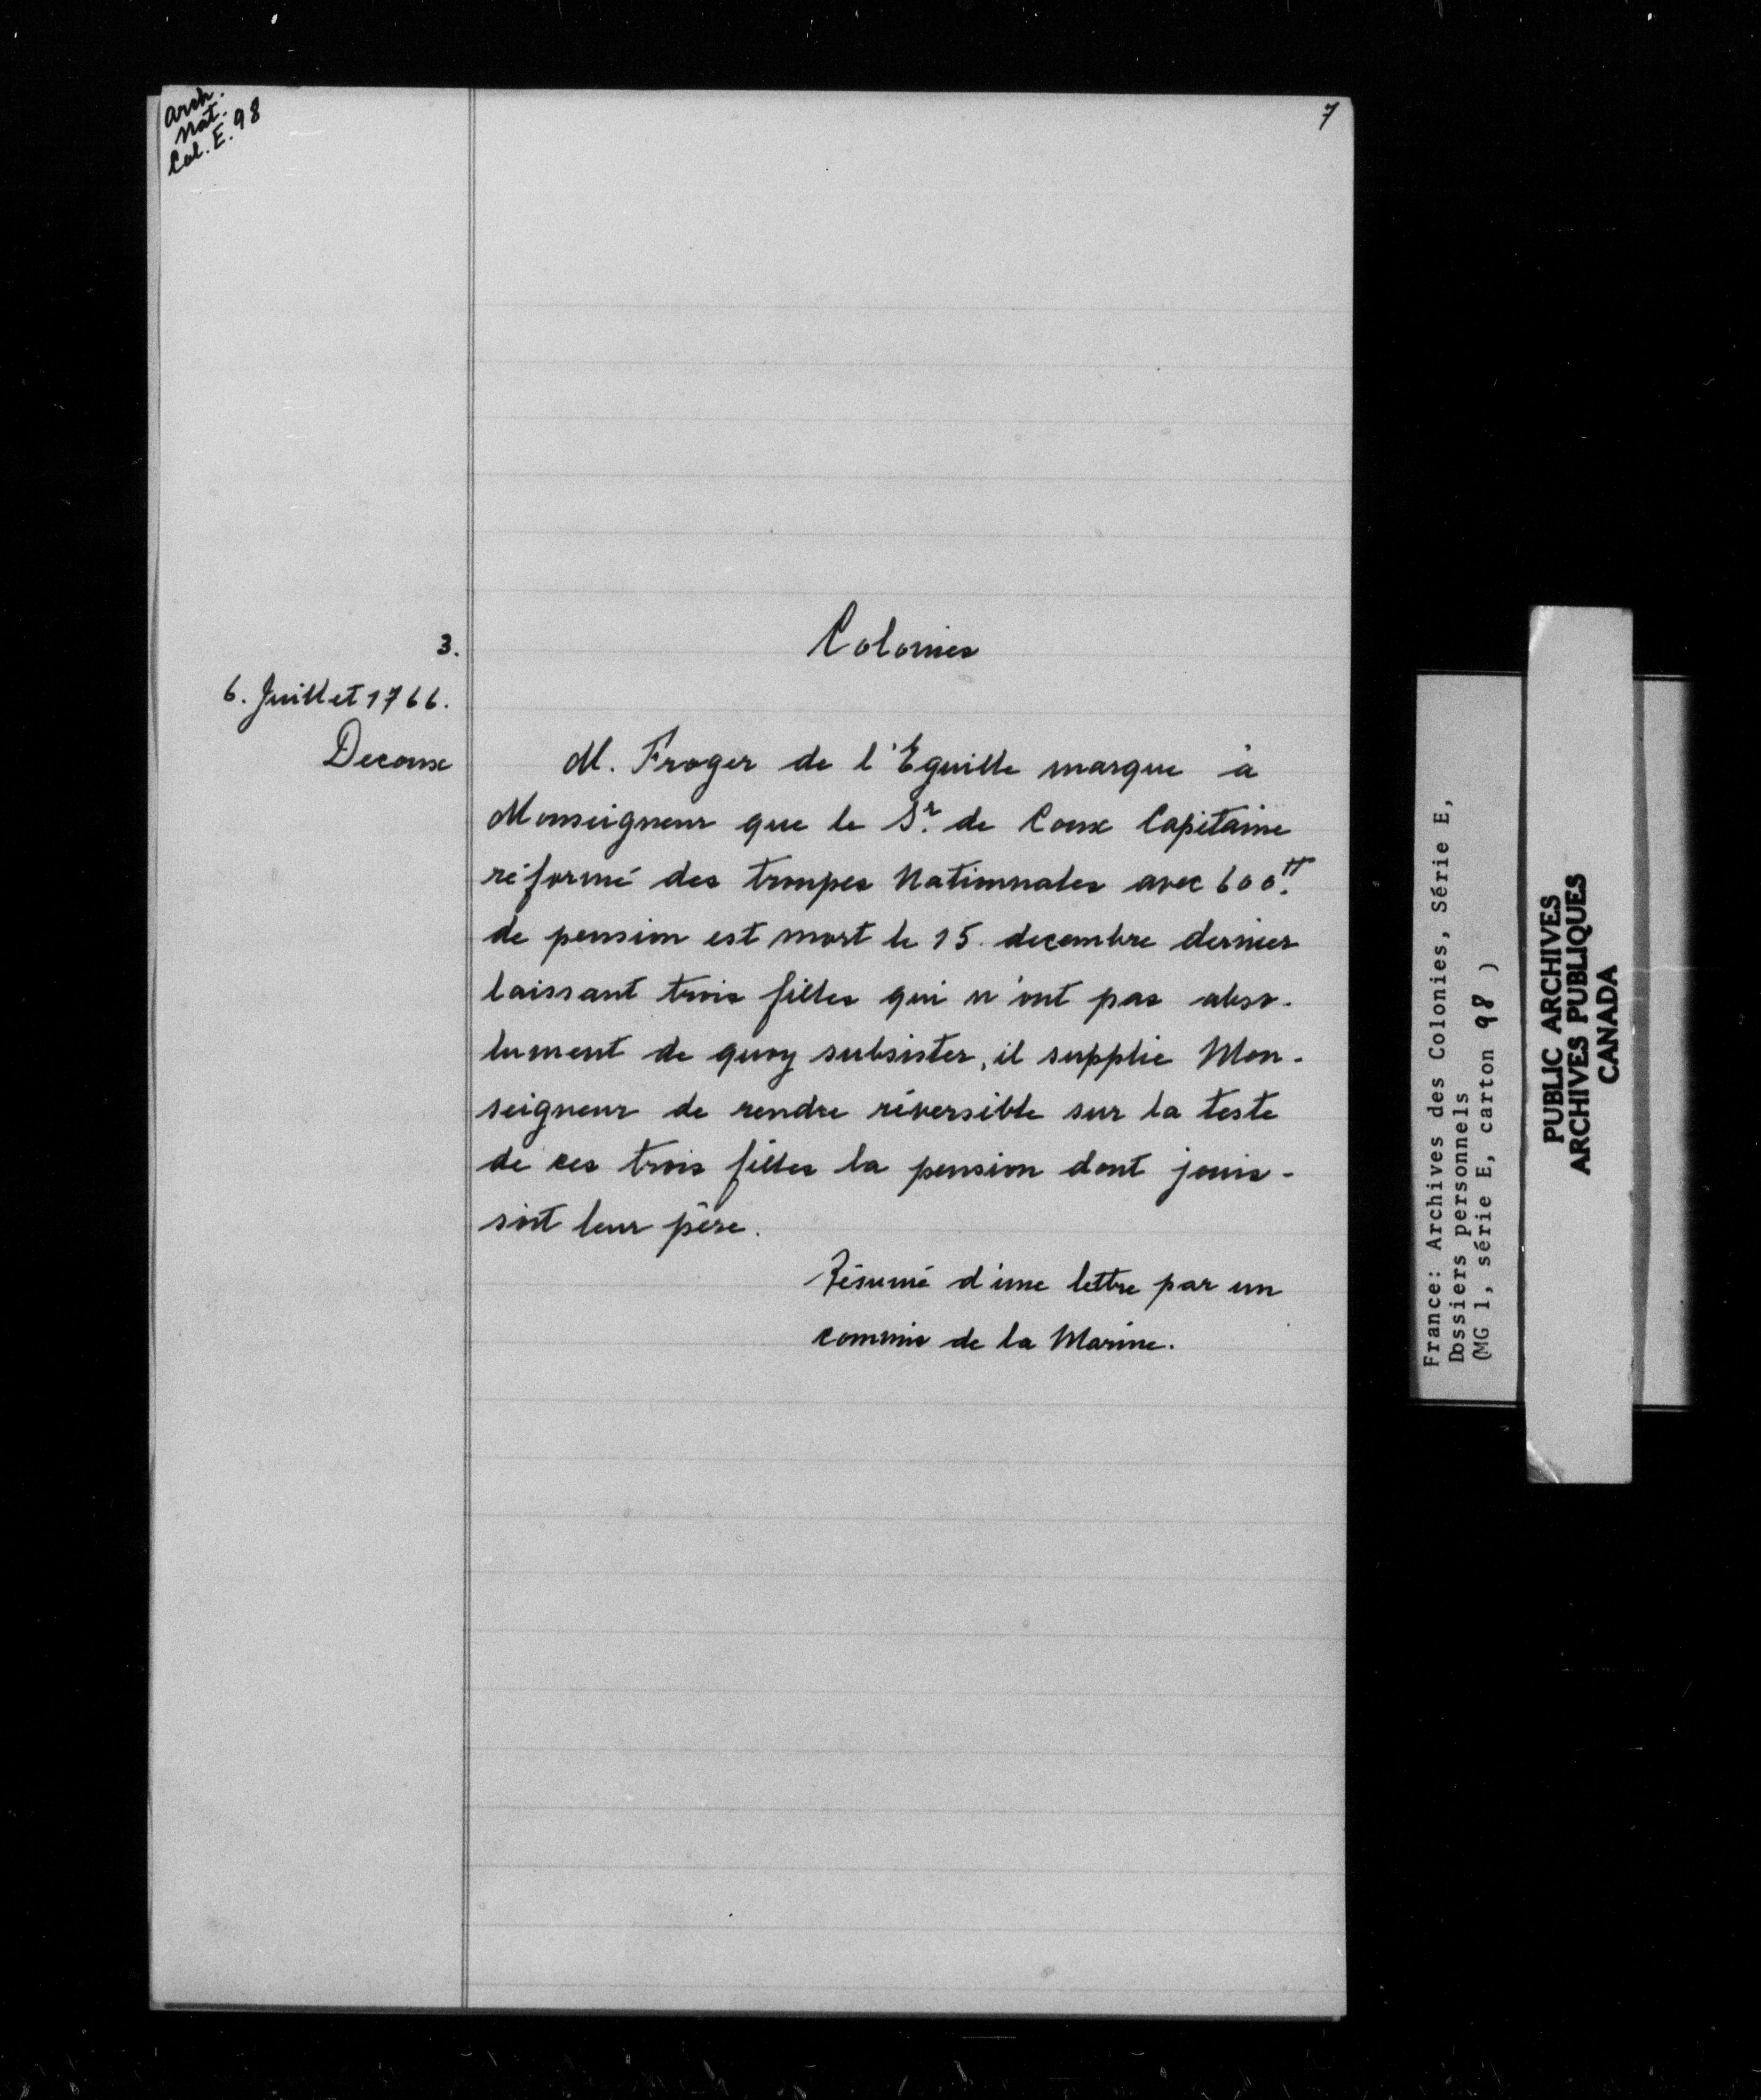 Arch.
Nat.
Col. E. 98
7
3.
6. Juillet 1766.
Decoux
Colonies
M. Froger de l'Eguille marque à
Monseigneur que le Sr. de Coux Capitaine
réformé des troupes Nationnales avec 600.tt
de pension est mort le 15. decembre dernier
laissant trois filles qui n'ont pas abso-
lument de quoy subsister, il supplie Mon-
seigneur de rendre réversible sur la teste
de ces trois filles la pension dont jouis-
soit leur père.
Résumé d'une lettre par un
commis de la Marine.
France: Archives des Colonies, Série E,
Dossiers personnels
(MG 1, série E, carton 98 )
PUBLIC ARCHIVES
ARCHIVES PUBLIQUES
CANADA